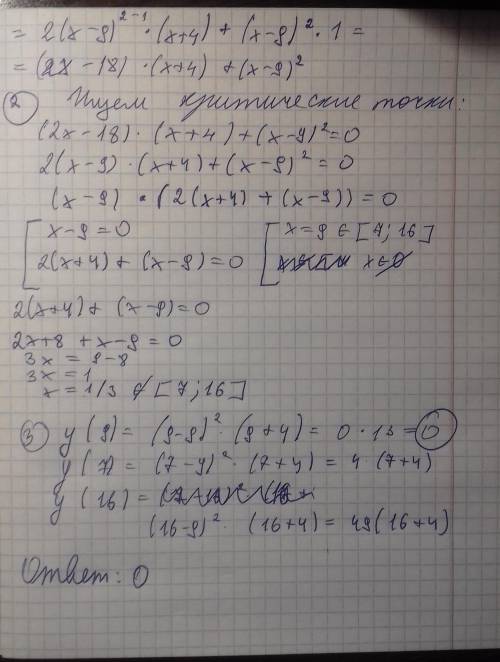 = 2(x-9)^{2-1} · (x+4) + (x-9)^2 · 1 =
= (2x - 18) · (x+4) + (x-9)^2
② Ищем критические точки:
(2x-18) · (x+4) + (x-9)^2 = 0
2(x-9) · (x+4) + (x-9)^2 = 0
(x-9) · (2(x+4) + (x-9)) = 0
[ x-9=0 [ x=9 ∈ [7; 16]
2(x+4) + (x-9) = 0
2(x+4) + (x-9) = 0
2x+8 + x-9 = 0
3x = 9-8
3x = 1
x = 1/3 ∉ [7; 16]
③ y(9) = (9-9)^2 · (9+4) = 0 · 13 = 0
y(7) = (7-9)^2 · (7+4) = 4 · (7+4)
y(16) =
(16-9)^2 · (16+4) = 49(16+4)
Ответ: 0